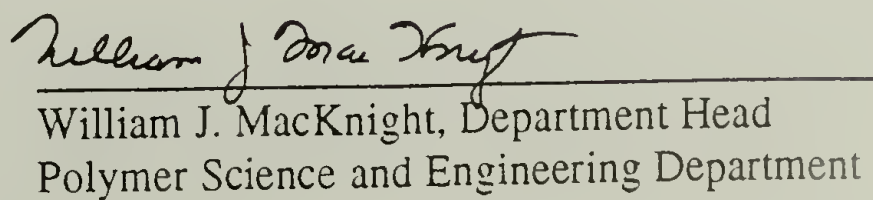 William J MacKnight
William J. MacKnight, Department Head
Polymer Science and Engineering Department